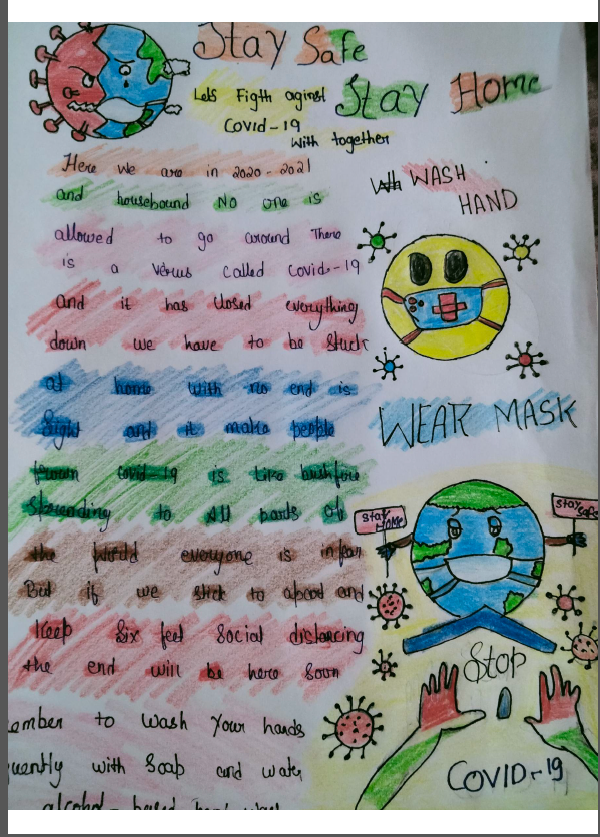 Stay Safe
Lets Figth against Stay Home
Covid-19
With together
Here we are in 2020-2021
and housebound NO one is
allowed to go around There
is a verus called Covid-19
and it has closed everything
down we have to be stuck
at home with no end is
sight and it make people
frown Covid-19 is like bushfire
to All parts of
the everyone is in fear
But if we stick to and
Keep six feet Social distancing
the end will be here soon
ember to wash your hands
quently with Soap and wate
alcohol-based
WASH
HAND
WEAR MASK
Stay Home
Stay Safe
Stop
COVID-19